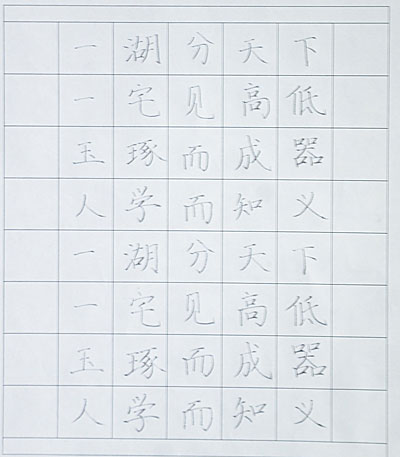 一湖分天下
一宅见高低
玉琢而成器
人学而知义
一湖分天下
一宅见高低
玉琢而成器
人学而知义